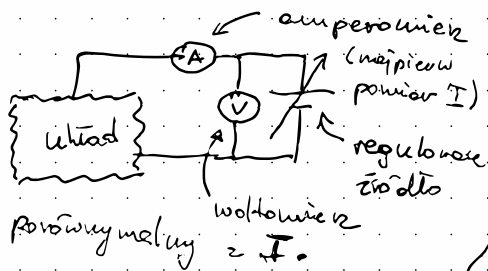 amperomierz
(najpierw
pomiar I)
A
V
układ
regulowane
źródło
woltomierz
porównywalny
z I.